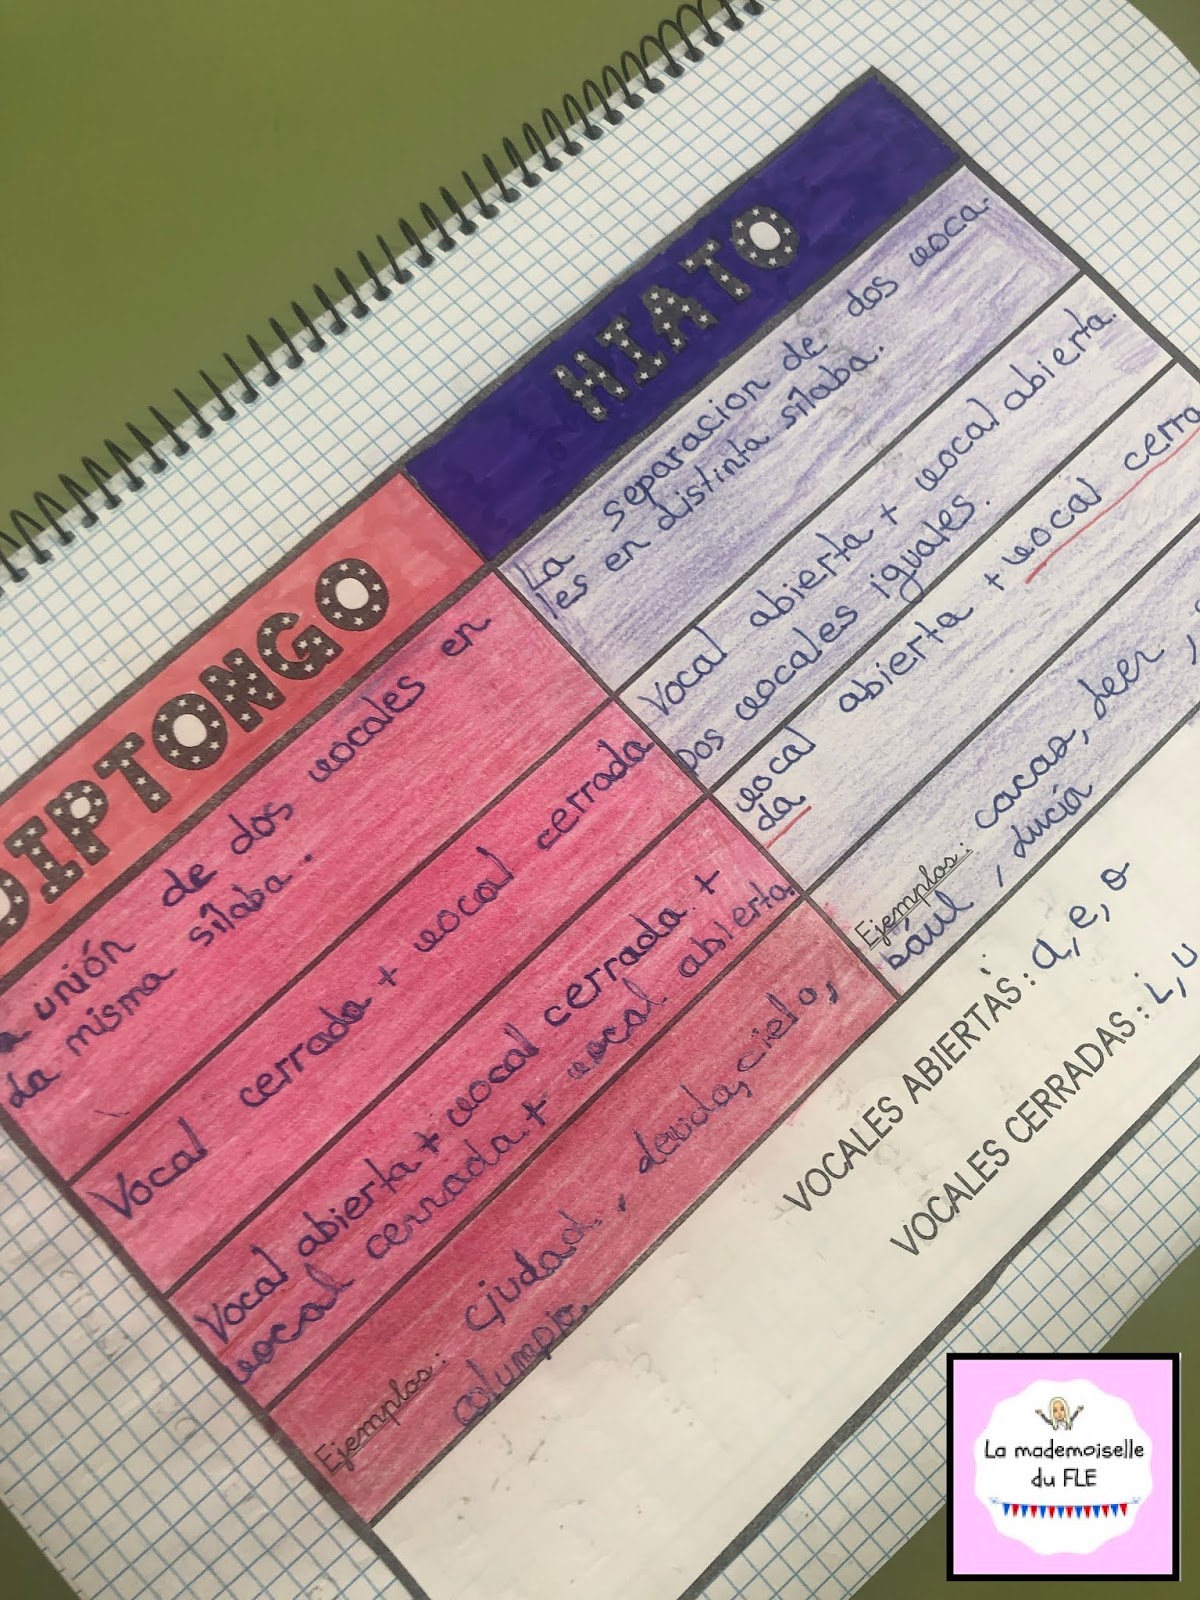 DIPTONGO
a unión de dos vocales en
la misma sílaba.
Vocal cerrada + vocal cerrada
Vocal abierta + vocal cerrada. +
vocal cerrada. + vocal abierta.
Ejemplos: ciudad, deuda, cielo,
columpio.
HIATO
La separacion de dos voca-
les en distinta sílaba.
Vocal abierta + vocal abierta.
Dos vocales iguales.
vocal abierta + vocal cerra
da
Ejemplos: cacao, leer,
baúl, Lucía
VOCALES ABIERTAS: a, e, o
VOCALES CERRADAS: i, u
La mademoiselle
du FLE